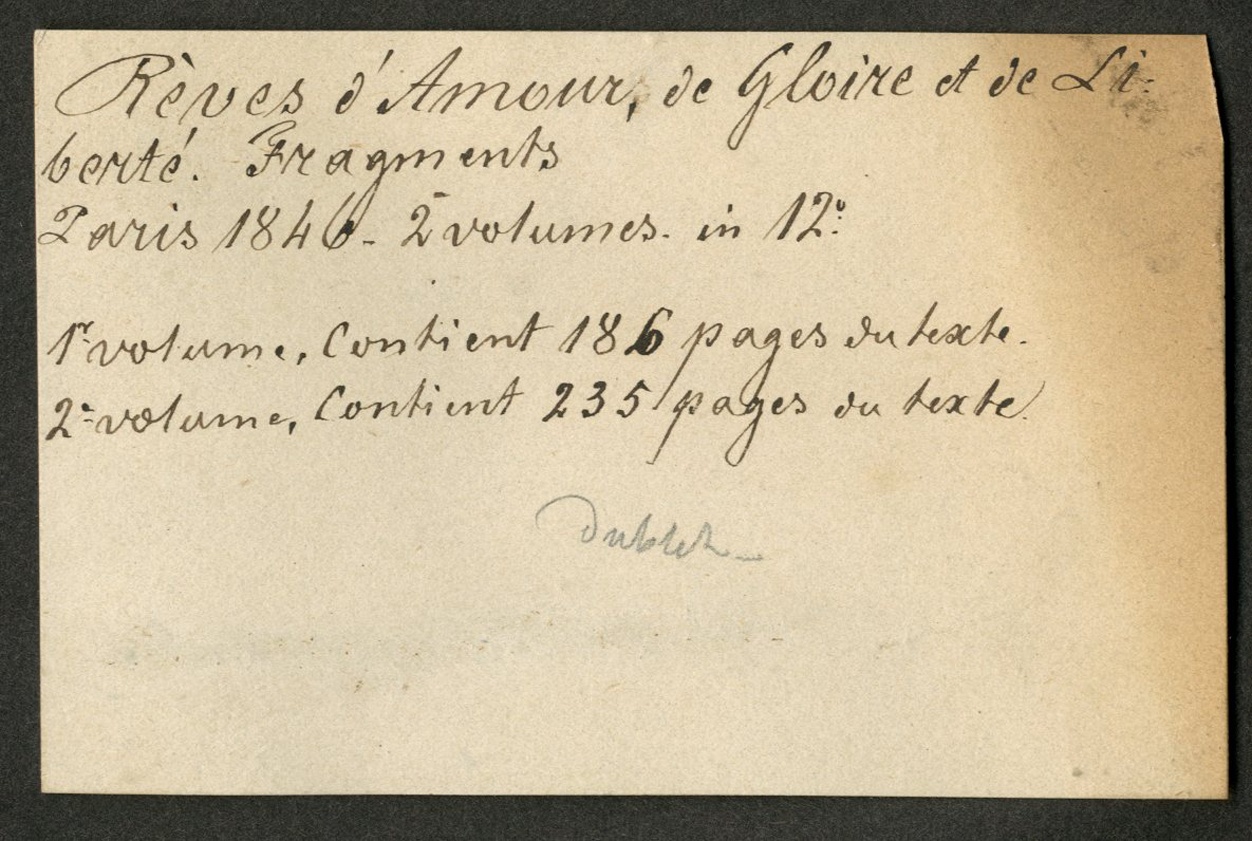 Rèves d'Amour, de Gloire et de Li-
berté. Fragments
Paris 1846 - 2 volumes. in 12º.
1r volume, Contient 186 pages du texte.
2e volume, Contient 235 pages du texte.
Dublet